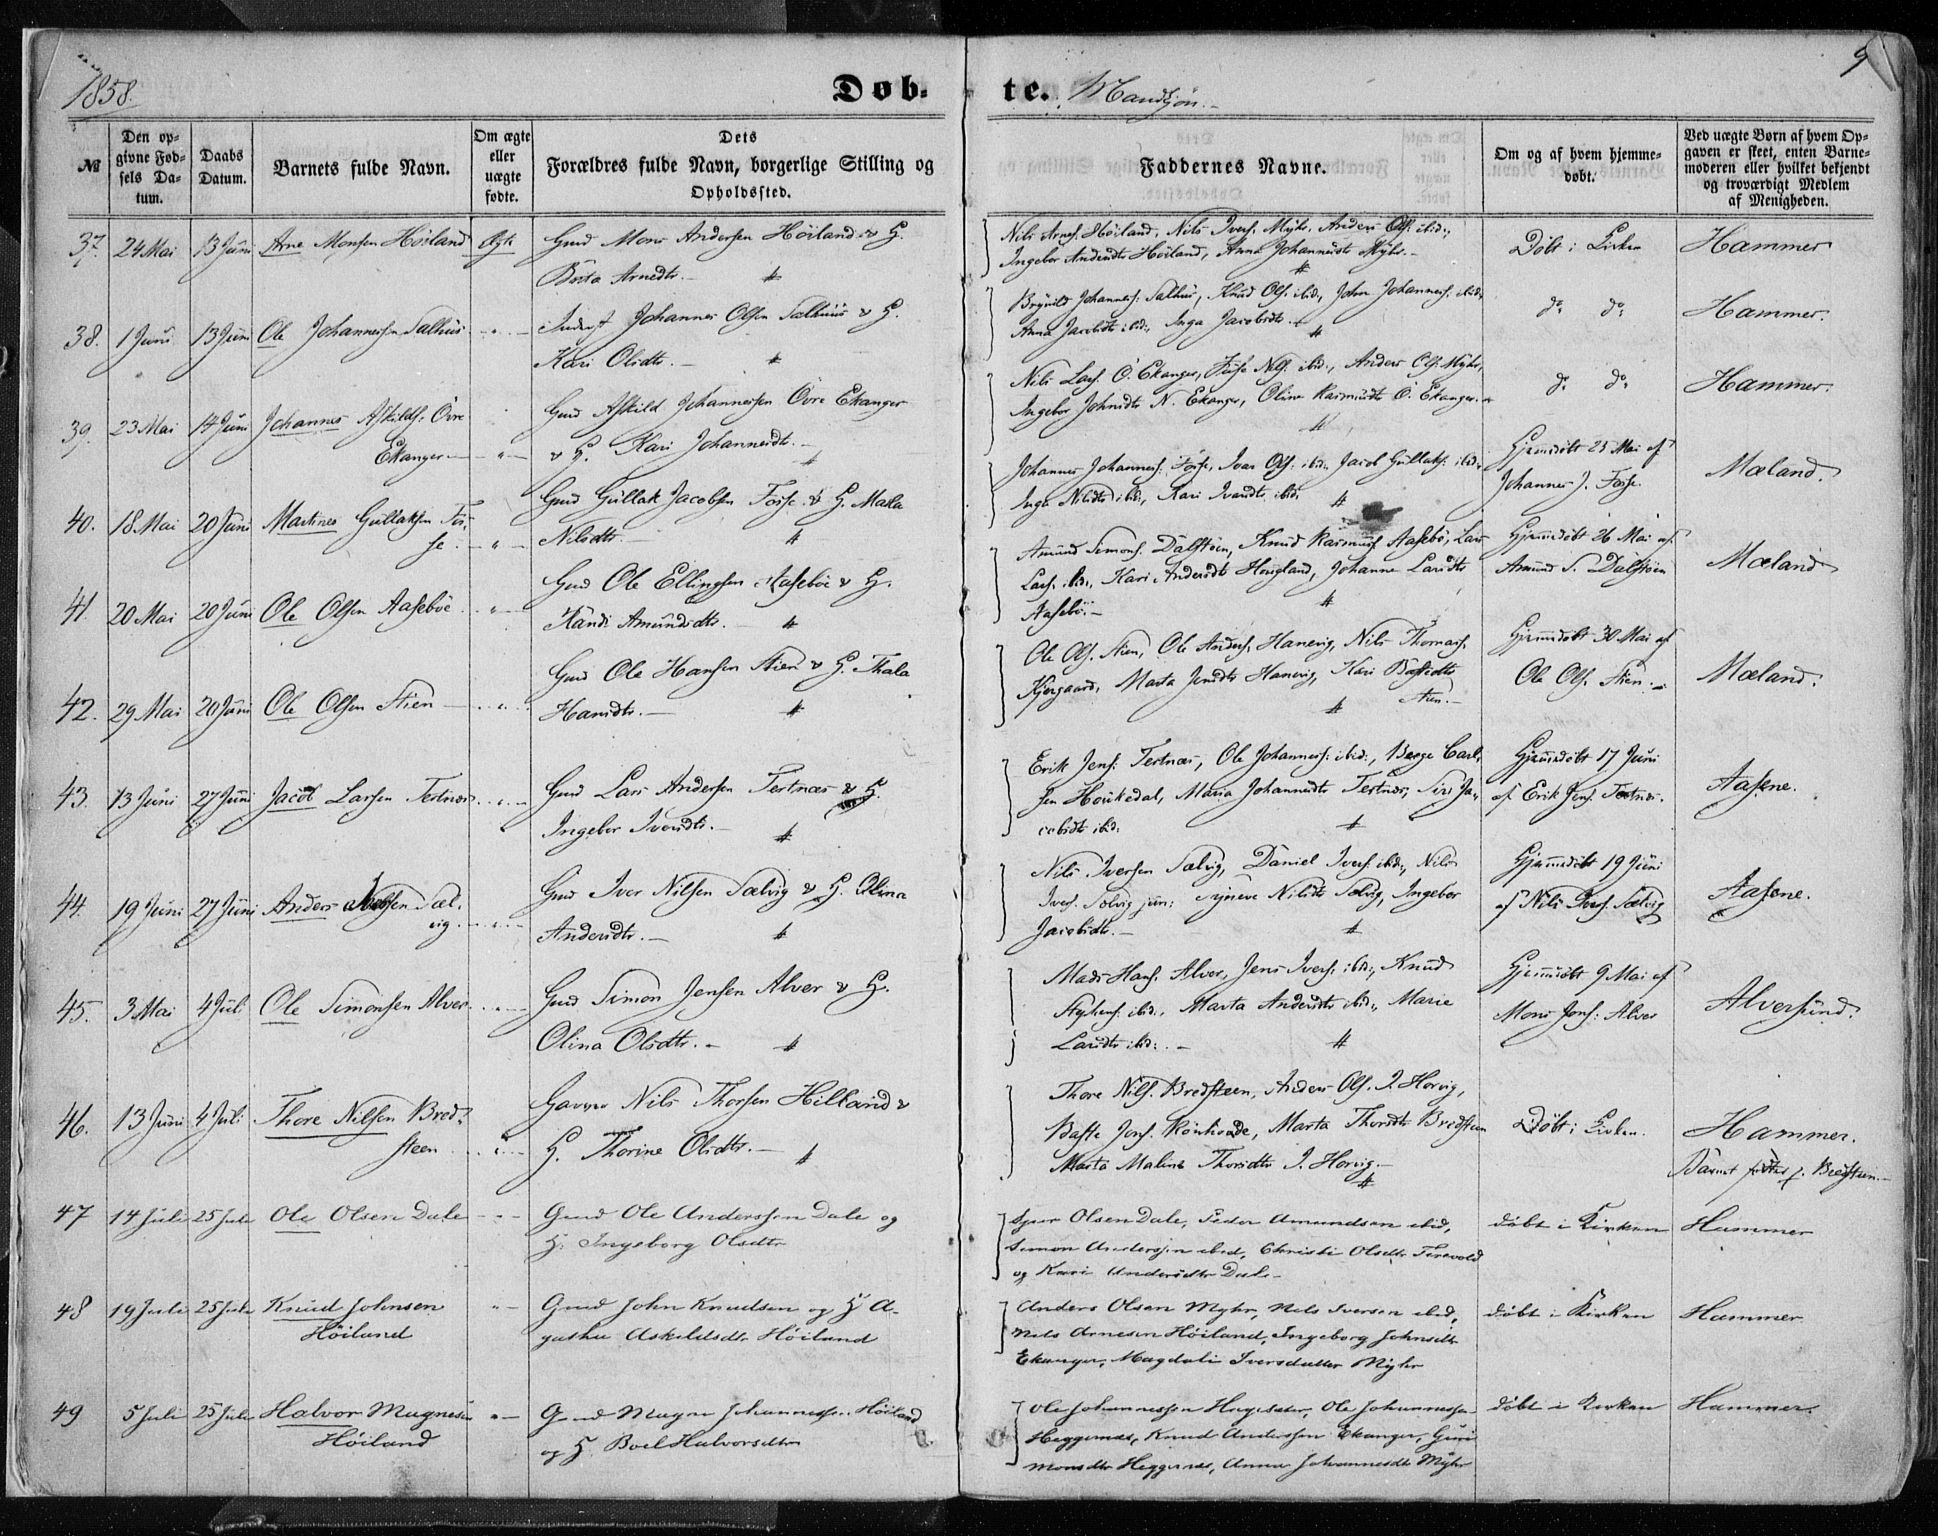 1858.
Døb-
te. Mandkjøn.
9
№
Den op-
givne Fød-
sels Da-
tum.
Daabs
Datum.
Barnets fulde Navn.
Om ægte
eller
uægte
fødte.
Dets
Forældres fulde Navn, borgerlige Stilling og
Opholdssted.
Faddernes Navne.
Om og af hvem hjemme-
døbt.
Ved uægte Børn af hvem Op-
gaven er skeet, enten Barne-
moderen eller hvilket bekjendt
og troværdigt Medlem
af Menigheden.
37. 24 Mai 13 Juni Arne Monsen Höiland Ægte Gmd Mons Andersen Höiland & H.
Arnedtr.
Nils Arnes. Höiland, Nils Ivers. Myhr, Anders Ols. ibid:,
Ingebor Andersdtr Höiland, Anna Johannesdtr Myhr.
Döbt i Kirken Hammer
38. 1 Juni 13 Juni Ole Johannessen Salhuus Johannes Olsen Salhuus & H.
Kari Olsdtr.
Johannes. Salhus, Knud Ols. ibid., John Johannes. ibid.,
Anna Jacobsdtr ibid., Inga Jacobsdtr.
do do Hammer.
39. 23 Mai 14 Juni Johannes Askilds. Övre
Ekanger
Gmd Askild Johannessen Övre Ekanger
& H. Kari Johannesdtr.
Nils Lars. Ö. Ekanger, Nils. ibid., Anders Ols. Myhr,
Ingebor Johnsdtr N. Ekanger, Oline Rasmusdtr Ö. Ekanger.
do do Hammer.
40. 18 Mai 20 Juni Martines Gullaksen Fos-
se.
Gmd Gullak Jacobsen Fosse & H. Mala
Nilsdtr.
Johannes Johannes. Fosse, Ivar Ols. ibid., Jacob Gullaks. ibid.,
Inga Nilsdtr ibid., Kari Ivarsdtr ibid.
Hjemmedöbt 25 Mai af
Johannes J. Fosse.
Mæland.
41. 20 Mai 20 Juni Ole Olsen Aasebøe
Gmd Ole Ellingsen Aasebøe & H.
Randi Amundsdtr.
Amund Simons. Dalstøen, Knud Rasmus. Aasebö, Lars
Lars. ibid., Kari Andersdtr Hougland, Johanne Larsdtr
Aasebö.
Hjemmedöbt 26 Mai af
Amund S. Dalstøen
Mæland
42. 29 Mai 20 Juni Ole Olsen Stien
Gmd Ole Hansen Stien & H. Thala
Hansdtr.
Ole Ols. Stien, Ole Anders. Hanevig, Nils Thomas.
Kjergaard, Marta Jensdtr Hanevig, Kari
Stien.
Hjemmedöbt 30 Mai af
Ole Ols. Stien.
Mæland.
43. 13 Juni 27 Juni Jacob Larsen Tertnæs
Gmd Lars Andersen Tertnæs & H.
Ingebor Iversdtr.
Erik Jens. Tertnæs, Ole Johannes. ibid., Børge Carl-
sen Houkedal, Maria Johannesdtr Tertnæs, Siri Ja-
cobsdtr ibid.
Hjemmedöbt 17 Juni
af Erik Jens. Tertnæs.
Aasene.
44. 19 Juni 27 Juni Anders Iversen Sæl-
vig.
Gmd Iver Nilsen Sælvig & H. Olina
Andersdtr.
Nils Iversen Sælvig, Daniel Ivers. ibid., Nils
Ivers. Sælvig jun: Synneve Nilsdtr Sælvig, Ingebor
Jacobsdtr.
Hjemmedöbt 19 Juni
af Nils Ivers. Sælvig
Aasene.
45. 3 Mai 4 Juli Ole Simonsen Alver.
Gmd Simon Jensen Alver & H.
Olina Olsdtr.
Mads Hans. Alver, Jens Ivers. ibid., Knud
ibid., Marta Andersdtr ibid., Marie
Larsdtr ibid.
Hjemmedöbt 9 Mai af
Mons Jens. Alver
Alversund.
46. 13 Juni 4 Juli Thore Nilsen Bred-
steen
Nils Thorsen Hilland &
H. Thorine Olsdtr.
Thore Nils. Bredsteen, Anders Ols. I. Horvig,
Marta Thorsdtr Bredsteen
Marta Malene Thorsdtr I. Horvig.
Döbt i Kirken. Hammer.
Barnet födtes p. Bredsteen.
47 14 Juli 25 Juli Ole Olsen Dale
Gmd Ole Anderssen Dale og
H. Ingeborg Olsdtr
Olsen Dale, Peder Amundsen ibid,
Simon Anderssen ibid, Christi Olsdtr
og Kari Andersdtr Dale
døbt i Kirken Hammer
48 19 Juli 25 Juli Knud Johnsen
Höiland
Gmd John Knudsen og H A-
gathe Askildsdtr Höiland
Anders Olsen Myhr, Nils Iversen ibid,
Niels Arnesen Höiland, Ingeborg Johnsdtr
Ekanger, Magdali Iversdatter Myhr
døbt i Kirken Hammer
49 5 Juli 25 Juli Halvor Magnesen
Höiland
Gmd Magne Johannessen Höiland
og H. Boel Halvorsdtr
Ole Johannessen, Ole Johannessen
Heggernæs, Knud Anderssen Ekanger, Guri
Monsdtr Heggernæs, Anna Johannesdtr Myhr
døbt i Kirken Hammer.